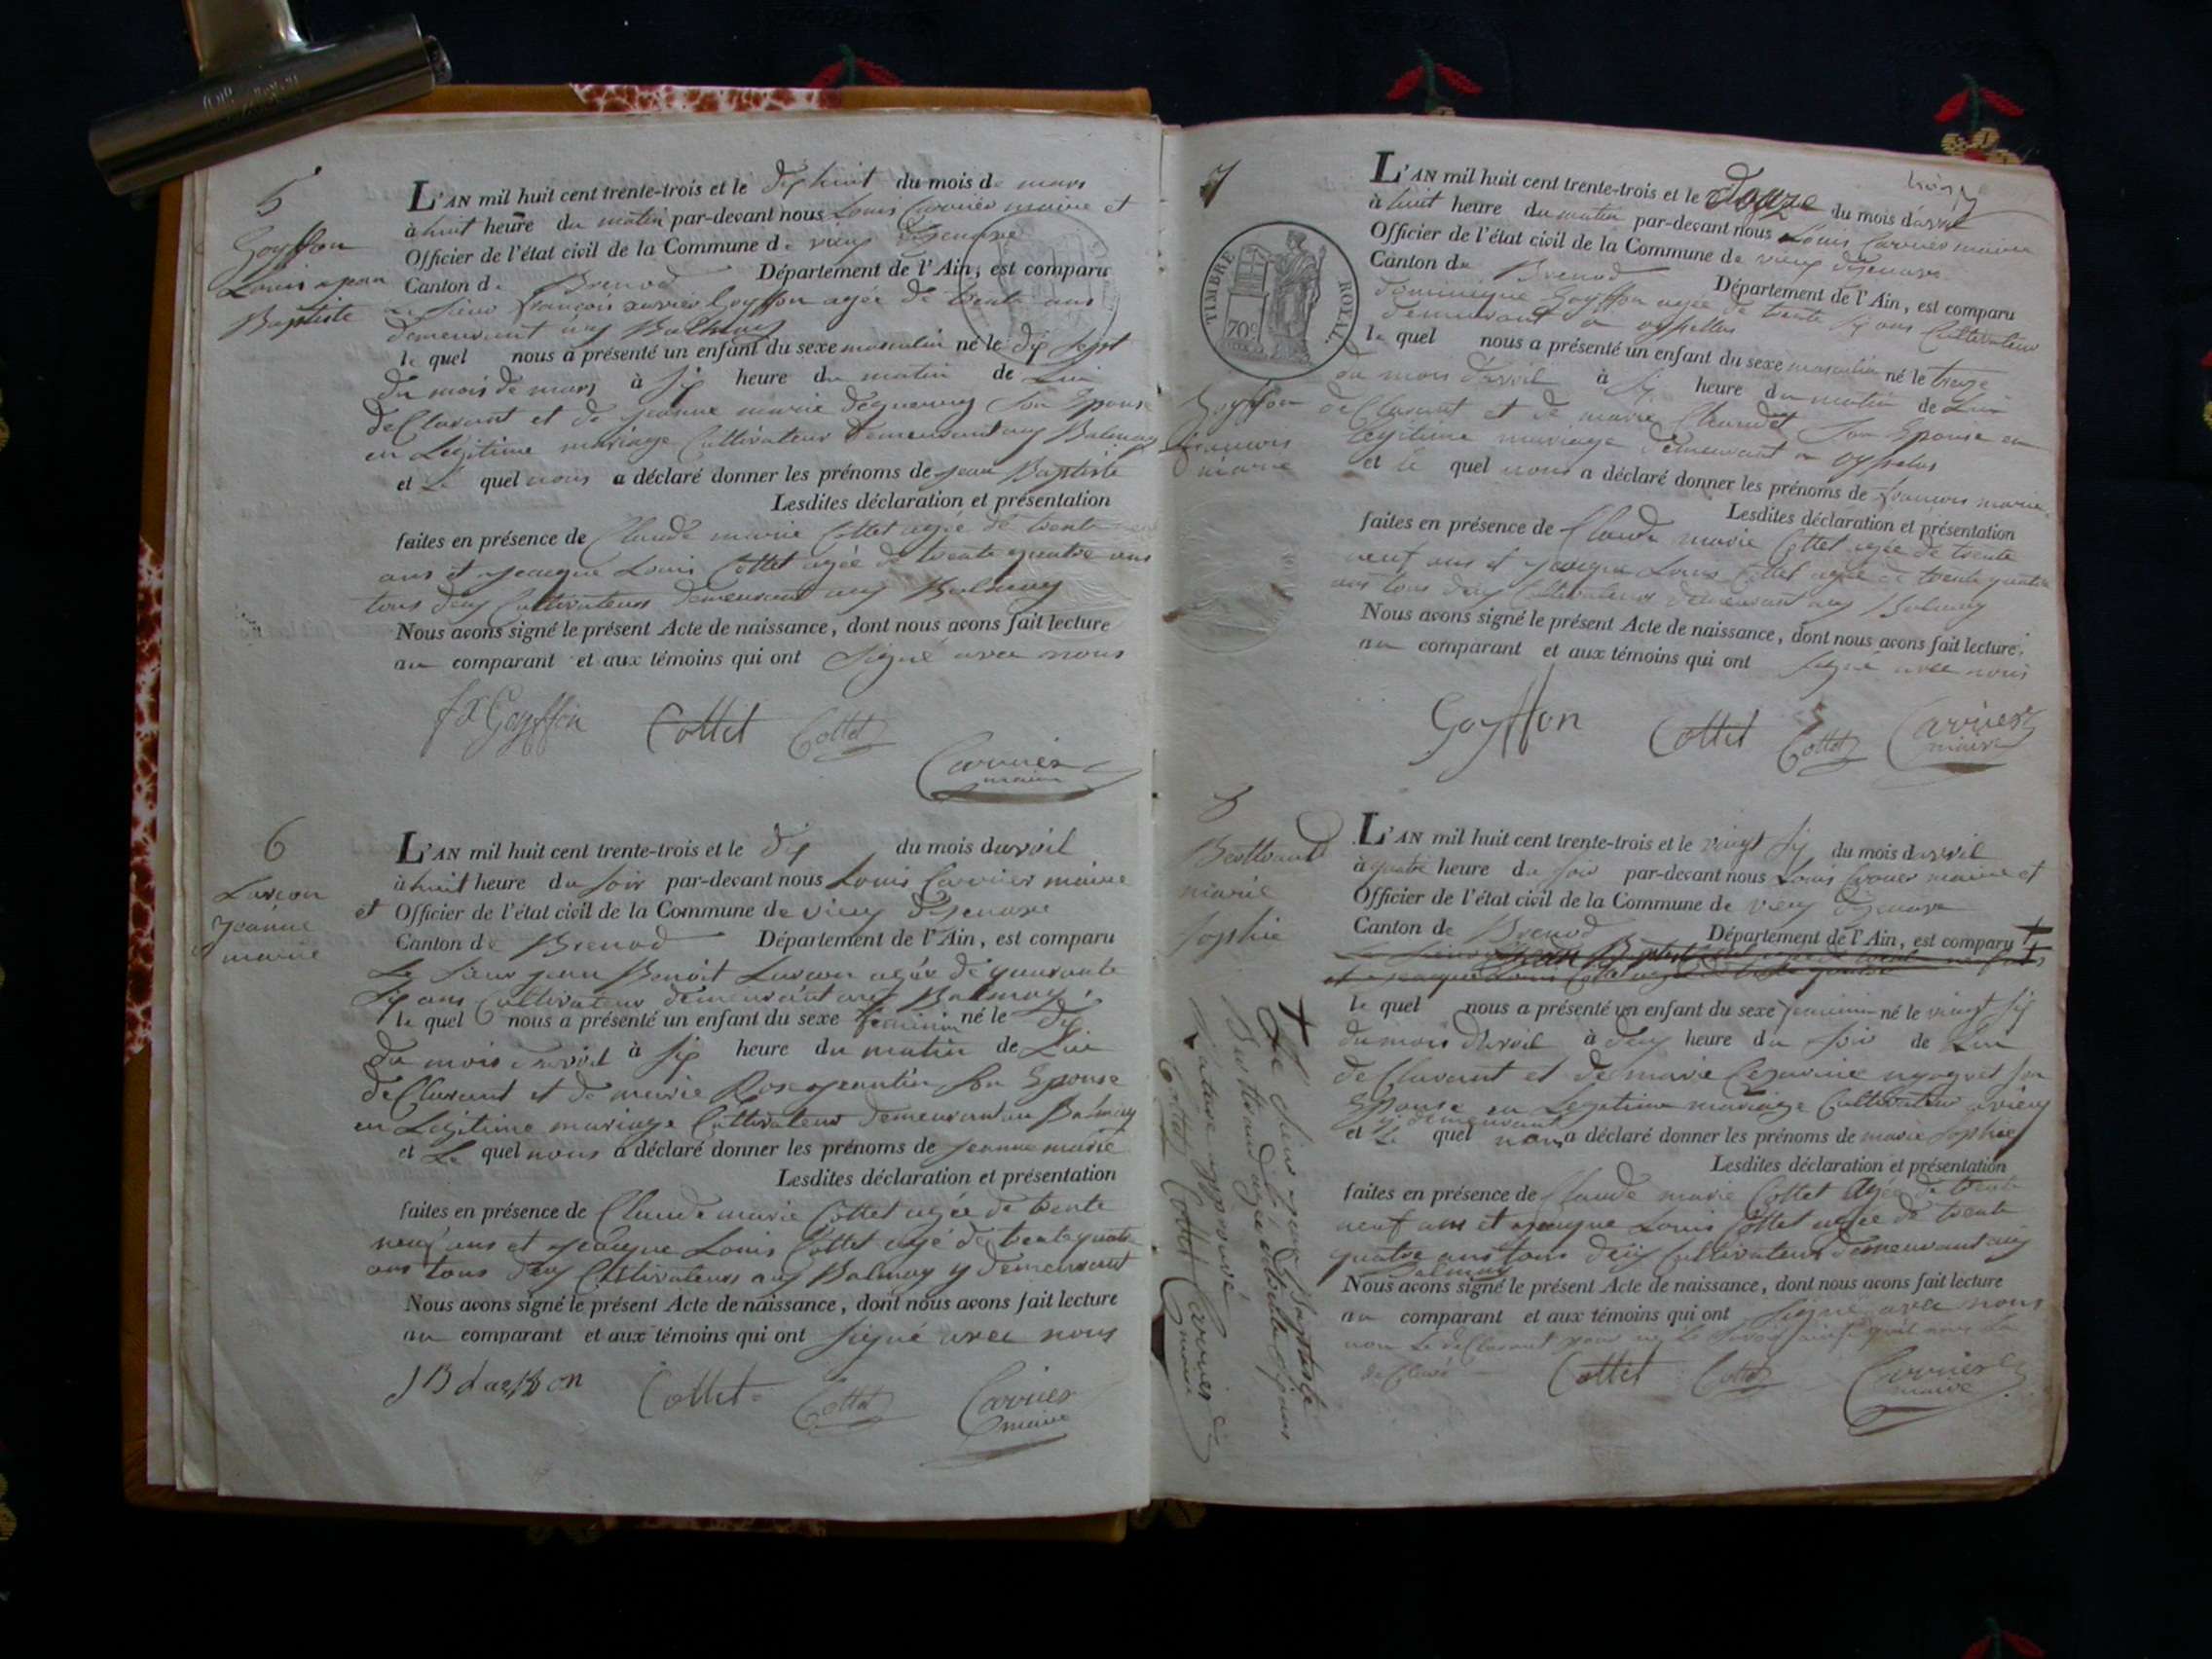 5
Goyffon
Louis jean
Baptiste
L'AN mil huit cent trente-trois et le dix huit du mois de mars
à huit heure du matin par-devant nous Louis Carrier maire et
Officier de l'état civil de la Commune de vieux disenave
Canton de Brenod Département de l'Ain, est comparu
Le Sieur françois xavier Goyffon agée de trente ans
demeurant aux Balmay
le quel nous a présenté un enfant du sexe masculin né le dix sept
du mois de mars à six heure du matin de Lui
declarant et de jeanne marie Son Epouse
en Légitime mariage Cultivateur demeurant aux Balmay
et Le quel nous a déclaré donner les prénoms de jean Baptiste
Lesdites déclaration et présentation
faites en présence de Claude marie Cottet agée de trente neuf
ans et jeacque Louis Cottet agée de trente quatre ans
tous deux Cultivateurs demeurant aux Balmay
Nous avons signé le présent Acte de naissance, dont nous avons fait lecture
au comparant et aux témoins qui ont Signé avec nous
fx Goyffon Cottet Cottet
Carrier
maire
6
Jeanne
marie
L'AN mil huit cent trente-trois et le dix du mois d'avril
à huit heure du soir par-devant nous Louis Carrier maire
et Officier de l'état civil de la Commune de vieux disenave
Canton de Brenod Département de l'Ain, est comparu
Le Sieur jean Benoit agée de quarante
Six ans Cultivateur demeurant aux Balmay
le quel nous a présenté un enfant du sexe féminin né le dix
du mois d'avril à six heure du matin de Lui
declarant et de marie Rose jeantin Son Epouse
en Légitime mariage Cultivateur demeurant au Balmay
et Le quel nous a déclaré donner les prénoms de jeanne marie
Lesdites déclaration et présentation
faites en présence de Claude marie Cottet agée de trente
neuf ans et jeacque Louis Cottet agé de trente quatre
ans tous deux Cultivateurs aux Balmay y demeurant
Nous avons signé le présent Acte de naissance, dont nous avons fait lecture
au comparant et aux témoins qui ont Signé avec nous
Cottet Cottet Carrier
maire
7
TIMBRE ROYAL
70c
Goyffon
francois
marie
L'AN mil huit cent trente-trois et le Douze du mois d'avril
à huit heure du matin par-devant nous Louis Carrier maire
Officier de l'état civil de la Commune de vieux disenave
Canton de Brenod Département de l'Ain, est comparu
dominique Goyffon agée de trente six ans Cultivateur
demeurant a
le quel nous a présenté un enfant du sexe masculin né le treize
du mois d'avril à six heure du matin de Lui
declarant et de marie Chaudet Son Epouse en
Legitime mariage demeurant a
et le quel nous a déclaré donner les prénoms de francois marie
Lesdites déclaration et présentation
faites en présence de Claude marie Cottet agée de trente
neuf ans et jeacque Louis Cottet agée de trente quatre
ans tous deux Cultivateurs demeurant aux Balmay
Nous avons signé le présent Acte de naissance, dont nous avons fait lecture
au comparant et aux témoins qui ont Signé avec nous
Goyffon Cottet Cottet Carrier
maire
8
Berthrand
marie
Sophie
L'AN mil huit cent trente-trois et le vingt six du mois d'avril
à quatre heure du soir par-devant nous Louis Carrier maire et
Officier de l'état civil de la Commune de vieux disenave
Canton de Brenod Département de l'Ain, est comparu
le quel nous a présenté un enfant du sexe feminin né le vingt six
du mois d'avril à deux heure du soir de Lui
declarant et de marie Cezarine Son
Epouse en Legitime mariage Cultivateur a vieux
y demeurant
et Le quel nous a déclaré donner les prénoms de marie Sophie
Lesdites déclaration et présentation
faites en présence de Claude marie Cottet agée de trente
neuf ans et jeacque Louis Cottet agée de trente
quatre ans tous deux Cultivateurs demeurant aux
Balmay
Nous avons signé le présent Acte de naissance, dont nous avons fait lecture
au comparant et aux témoins qui ont Signé avec nous
non Le declarant pour ne Le Savoir ainsi qu'il nous La
declaré Cottet Cottet Carrier
maire
Le Sieur jean Baptiste
Berthrand agée de
approuvé
Cottet Cottet Carrier
maire